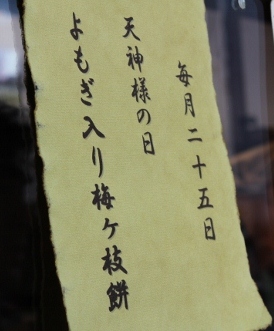 毎月二十五日
天神様の日
よもぎ入り梅ヶ枝餅